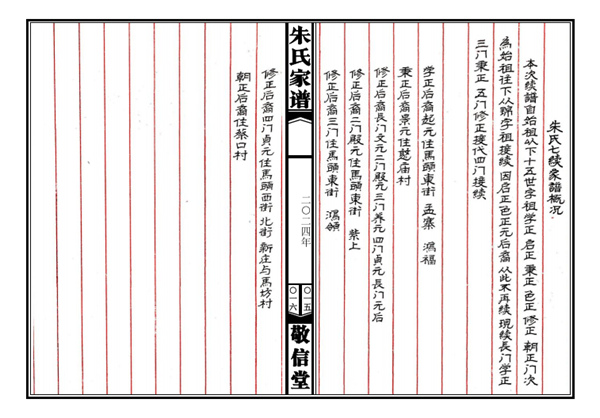 朱氏七续家譜概况
本次续譜自始祖以下十五世字祖学正 启正 秉正 色正 修正 朝正门次
為始祖往下从绵字祖接续 因启正色正元后裔 从此不再续 现续長门学正
三门秉正 五门修正接代四门接续
学正后裔起元住馬頭東街 孟寨 鴻福
秉正后裔景元住憨庙村
修正后裔長门文元二门殿元三门养元四门貞元長门元后
修正后裔二门殿元住馬頭東街 紫上
修正后裔三门住馬頭東街 鴻頌
朱氏家谱
二〇二四年
〇一五
〇一六
敬信堂
修正后裔四门貞元住馬頭西街 北街 新庄与馬坊村
朝正后裔住蔡口村